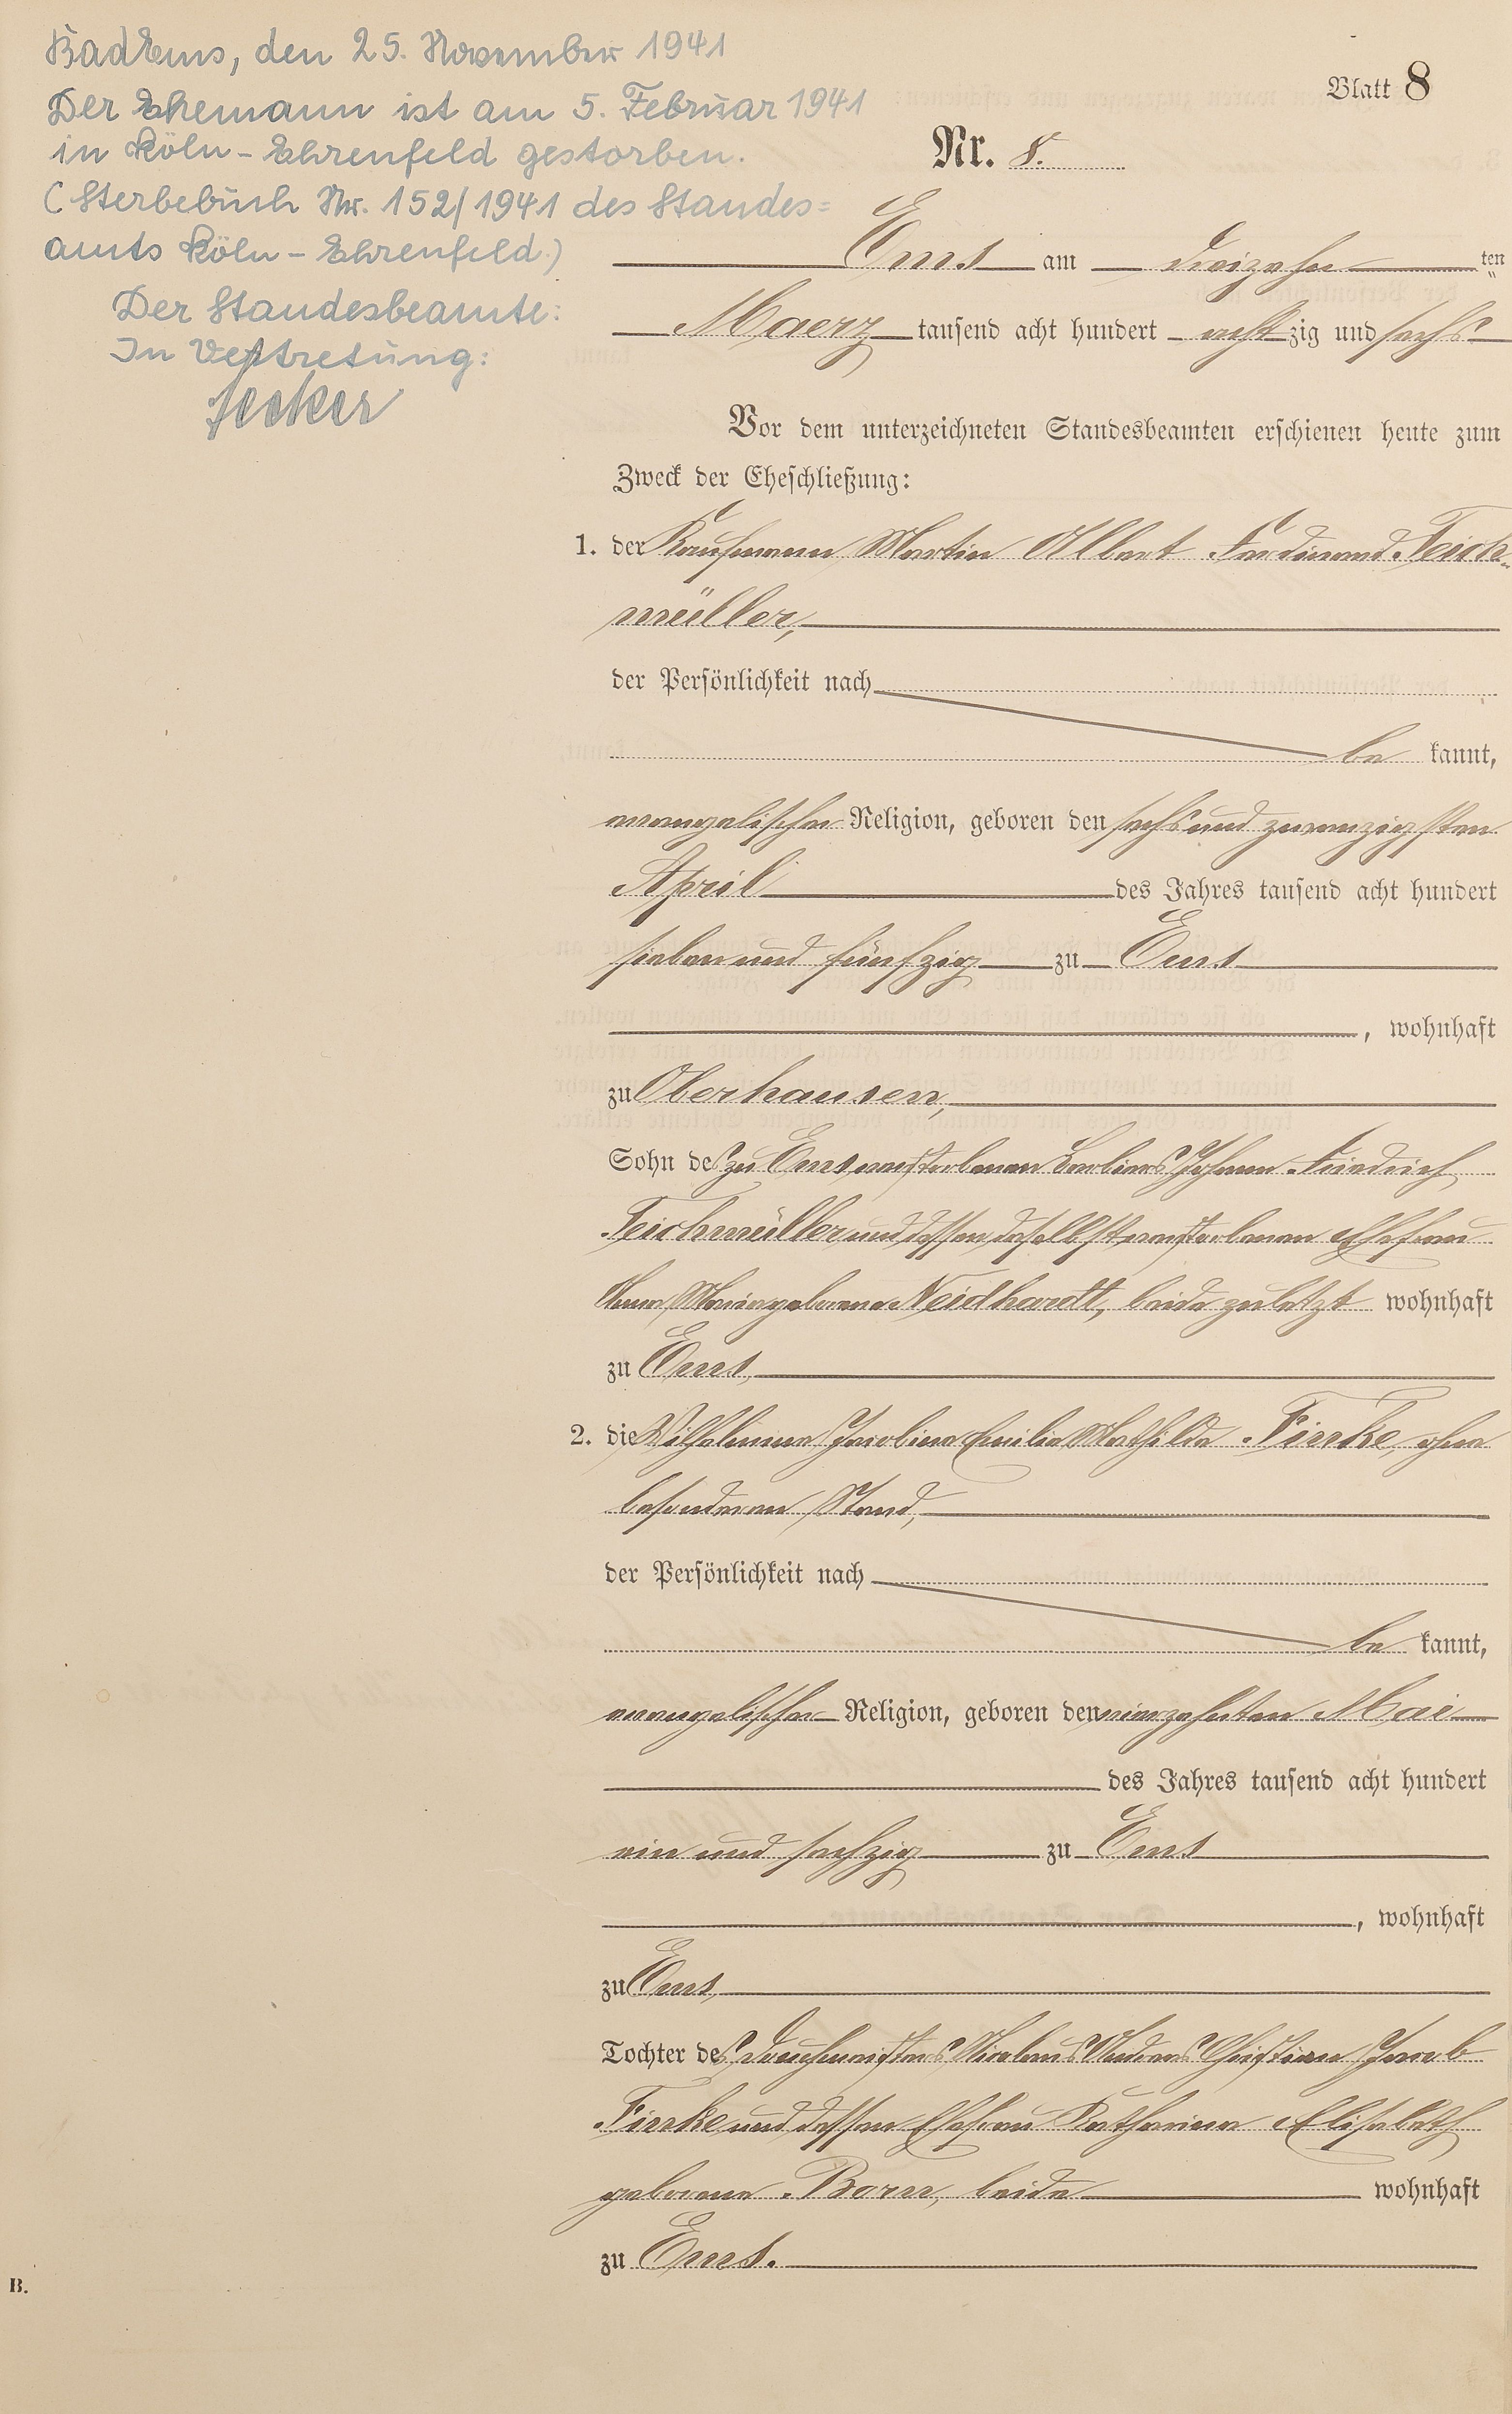 Bad Ems, den 25. November 1941
Der Ehemann ist am 5. Februar 1941
in Köln-Ehrenfeld gestorben.
(Sterbebuch Nr. 152/1941 des Standes=
amts Köln-Ehrenfeld.)
Der Standesbeamte:
In Vertretung:
Blatt 8
Nr. 8.
Ems am dreizehn ten
Maerz tausend acht hundert achtzig und sechs
Vor dem unterzeichneten Standesbeamten erschienen heute zum
Zweck der Eheschließung:
1. der Kaufmann Martin Albert Ferdinand Teich-
müller,
der Persönlichkeit nach
be kannt,
evangelischer Religion, geboren den sechs und zwanzigsten
April des Jahres tausend acht hundert
sieben und fünfzig zu Ems
, wohnhaft
zu Oberhausen,
Sohn des zu Ems verstorbenen Johann Friedrich
Teichmüller und dessen daselbst verstorbenen Ehefrau
Anna Maria geborene Neidhardt, beide zuletzt wohnhaft
zu Ems,
2. die Wilhelmine Jacobine Emilie Mathilde Finke, ohne
besonderen Stand,
der Persönlichkeit nach
be kannt,
evangelischer Religion, geboren den vierzehnten Mai
des Jahres tausend acht hundert
ein und sechzig zu Ems
, wohnhaft
zu Ems,
Tochter des Andreas Christian Jacob
Finke und dessen Ehefrau Katharina Elisabeth
geborene Born, beide wohnhaft
zu Ems.
B.